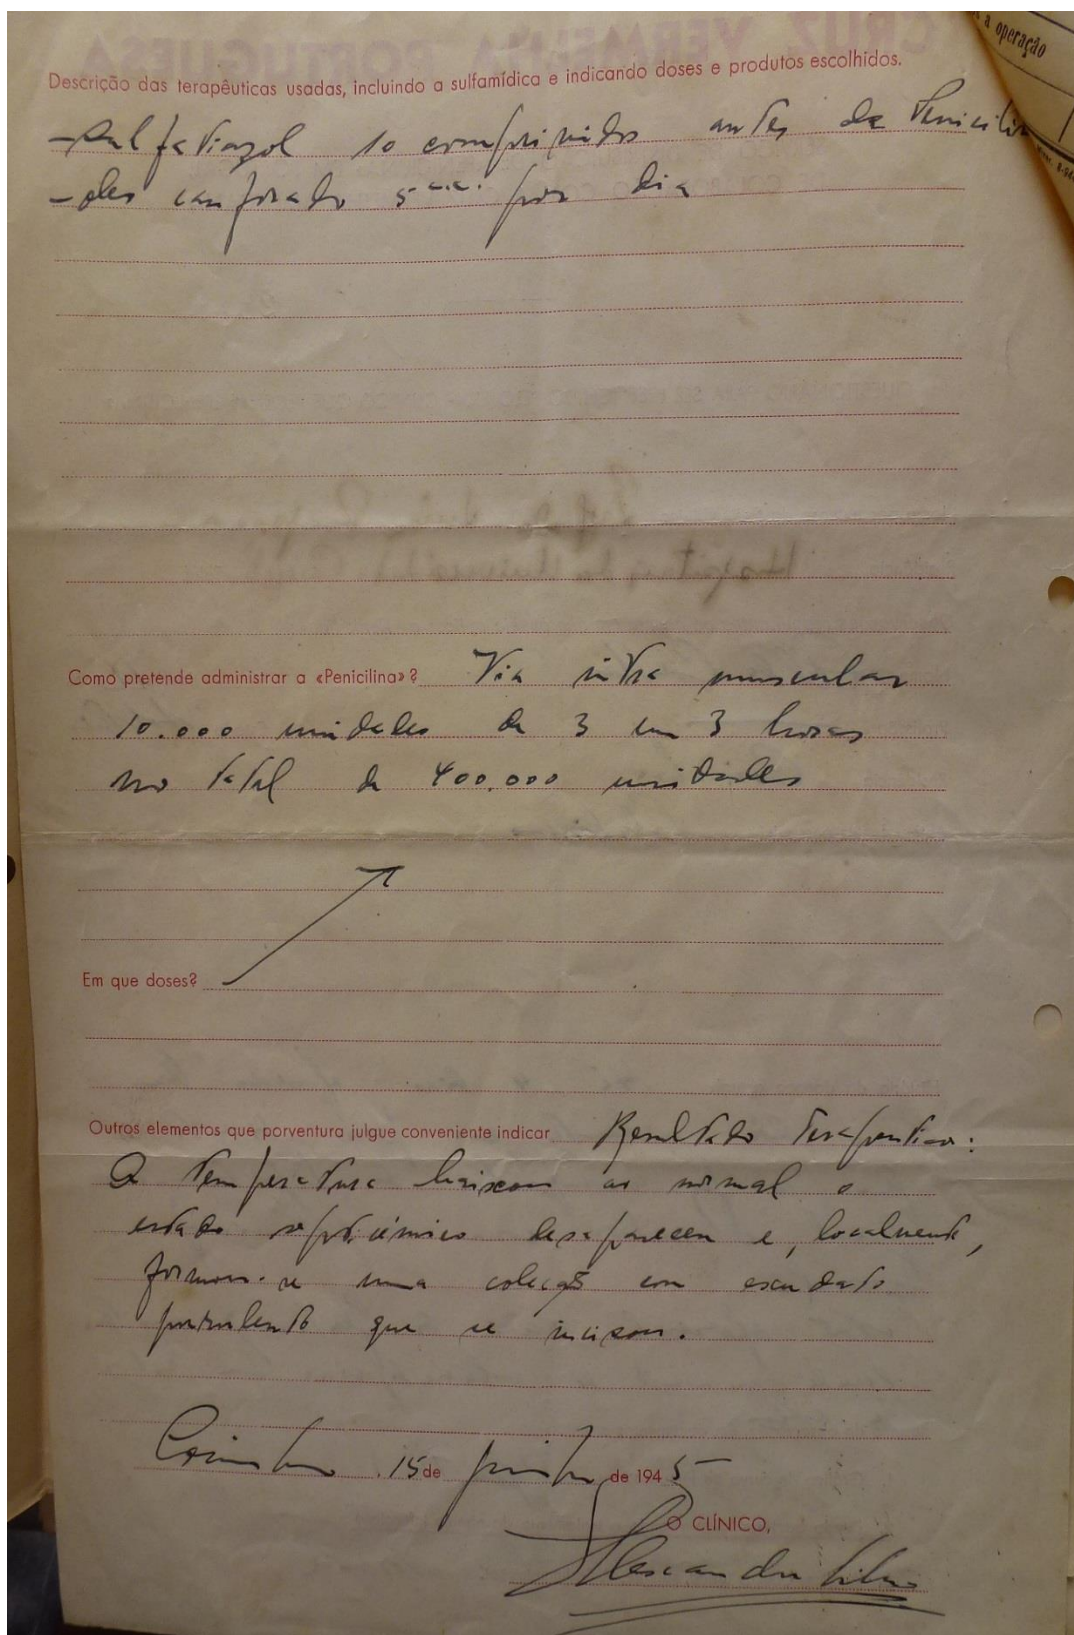 CRUZ VERMELHA PORTUGUESA
a operação
Descrição das terapêuticas usadas, incluindo a sulfamídica e indicando doses e produtos escolhidos.
- Sulfatiazol 10 comprimidos antes da Penicilin
- oleo canforado 5 c.c. por dia
Como pretende administrar a «Penicilina»? Via intra muscular
10.000 unidades de 3 em 3 horas
no total de 400.000 unidades
Em que doses?
Outros elementos que porventura julgue conveniente indicar Resultado terapeutico:
A temperatura baixou ao normal o
estado septicémico desapareceu e, localmente,
formou-se uma coleção com exsudato
purulento que se incisou.
Coimbra, 15 de junho de 1945
O CLÍNICO,
Alexandre Silva